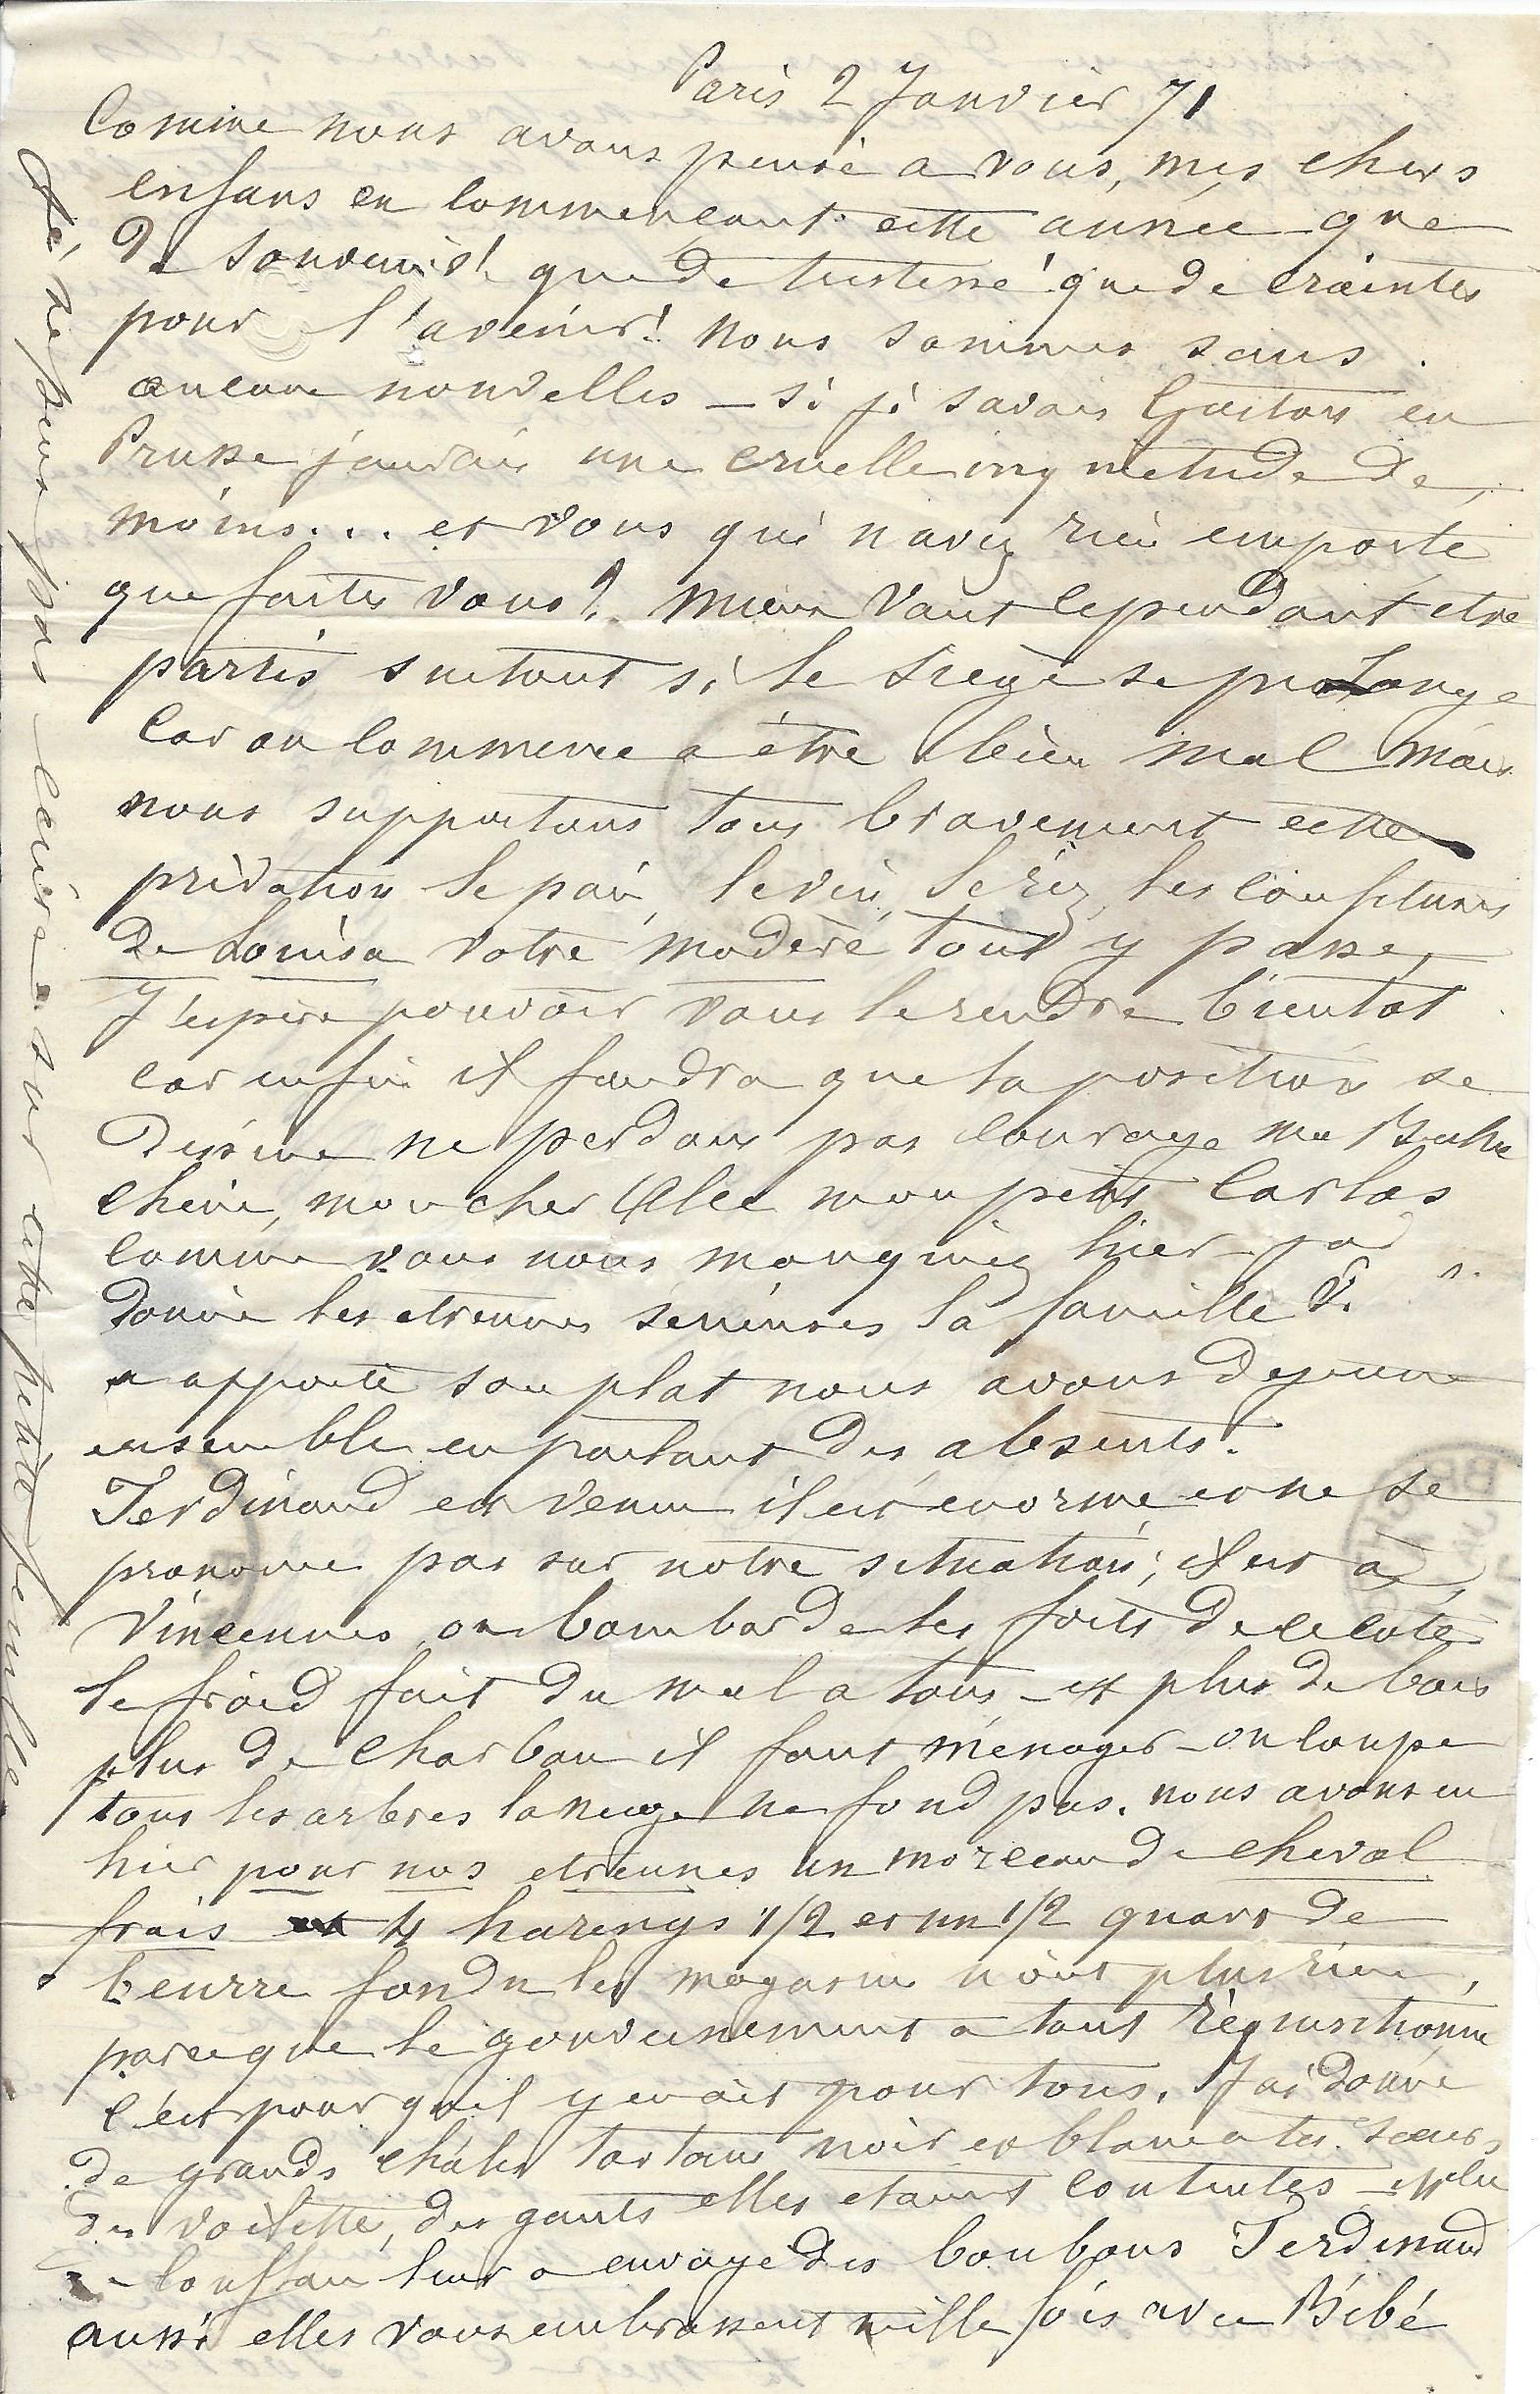 Paris 2 Janvier 71
Comme nous avons pensé a vous, mes chers
enfans en commencant cette année que
de souvenirs! que de tristesse! que de craintes
pour l'avenir! nous sommes sans
aucune nouvelles — si je savais Gaston en
Prusse j'aurais une cruelle inquietude de
moins... et vous qui n avez rien emporté
que faites vous? mieux vaut cependant etre
partis surtout si le siège se prolonge
car on commence a être bien mal mais
nous supportons tous bravement cette
privation le pain, le vin, le riz, les confitures
de Louisa votre madère tout y passe,
J'espère pouvoir vous le rendre bientot
car enfin il faudra que la position se
dessine ne perdons pas courage ma
chérie, mon cher mon petit Carlos
comme vous nous manquiez hier j'ai
donné les etrennes serieuses la famille V.
a apporté son plat nous avons dejeuné
ensemble en parlant des absents.
Ferdinand est venu il est enorme et ne se
prononce pas sur notre situation; il est à
Vincennes on bombarde les forts de ce coté
le froid fait du mal a tous — plus de bois
plus de charbon il faut ménager — on coupe
tous les arbres la neige ne fond pas. nous avons eu
hier pour nos etrennes un morceau de cheval
frais 4 harengs 1/2 et un 1/2 quart de
beurre fondu les magasins n'ont plus rien,
parceque le gouvernement a tout réquisitionné
c'est pour qu'il y en ait pour tous. J'ai donné
de grands châles tartans noir et blanc a tes soeurs
des voilette, des gants elles etaient contentes —
leur a envoyé des bonbons Ferdinand
aussi elles vous embrassent mille fois avec Bébé
ne peux pas écrire sur cette petite feuille
BR